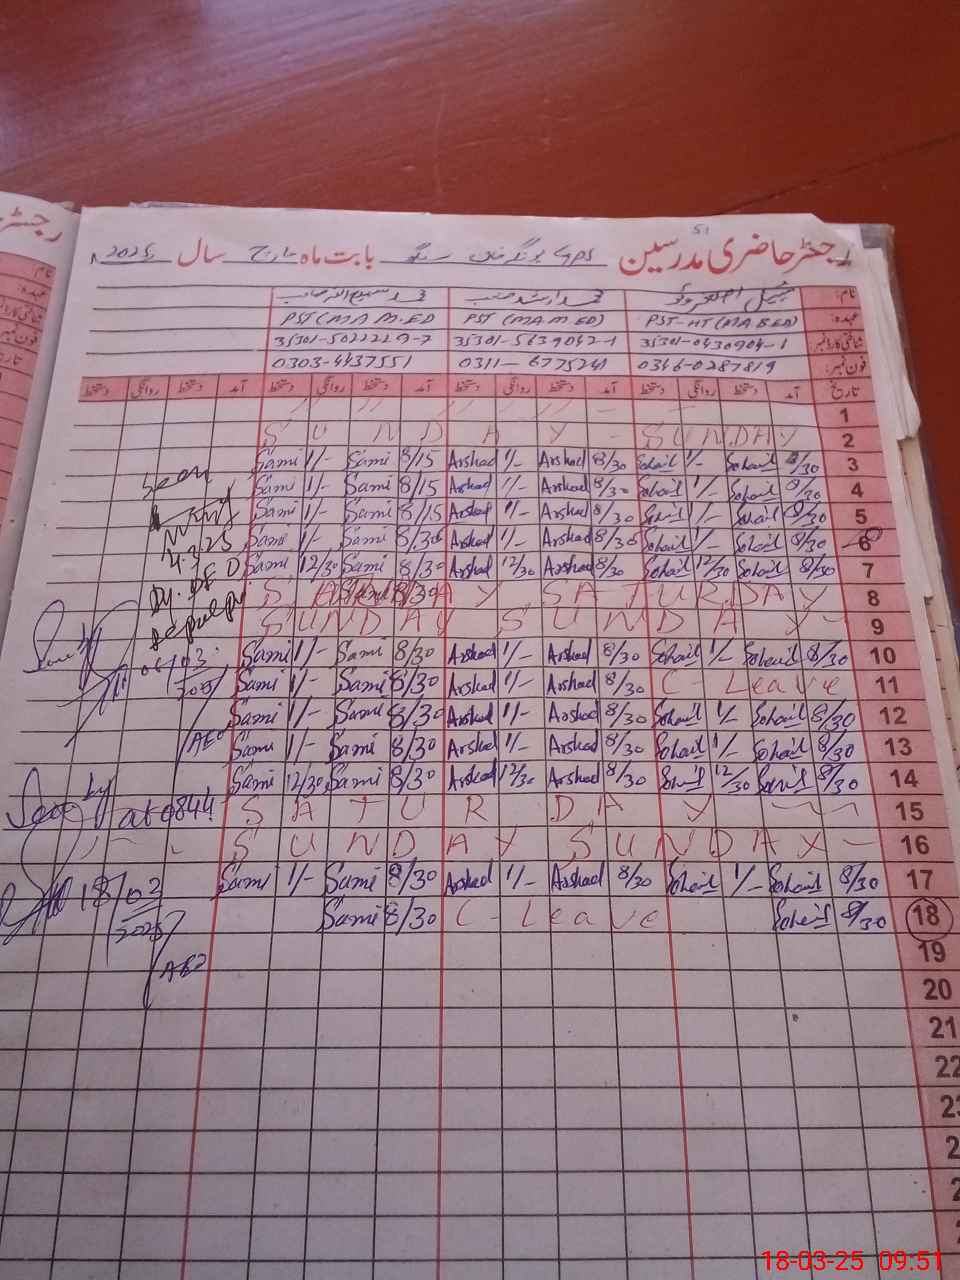 رجسٹر حاضری مدرسین GPS بابت ماہ مارچ سال 2025
51
نام:
عہدہ: PST-HT (M.A B.ED) PST (M.A M.ED) PST (M.A M.ED)
شناختی کارڈ نمبر 35301-0430904-1 35301-5639042-1
فون نمبر: 0346-0287819 0311-6775241 0303-4437551
تاریخ آمد دستخط روانگی دستخط آمد دستخط روانگی دستخط آمد دستخط روانگی دستخط آمد دستخط روانگی دستخط
1
SUNDAY - SUNDAY 2
Sami 1/- Sami 8/15 Arshad 1/- Arshad 8/30 Sohail 1/- Sohail 8/30 3
Sami 1/- Sami 8/15 Arshad 1/- Arshad 8/30 Sohail 1/- Sohail 8/30 4
Sami 1/- Sami 8/15 Arshad 1/- Arshad 8/30 Sohail 1/- Sohail 8/30 5
Sami 1/- Sami 8/30 Arshad 1/- Arshad 8/30 Sohail 1/- Sohail 8/30 6
Sami 12/30 Sami 8/30 Arshad 12/30 Arshad 8/30 Sohail 12/30 Sohail 8/30 7
SATURDAY SATURDAY 8
SUNDAY SUNDAY - 9
Sami 1/- Sami 8/30 Arshad 1/- Arshad 8/30 Sohail 1/- Sohail 8/30 10
Sami 1/- Sami 8/30 Arshad 1/- Arshad 8/30 C-Leave 11
Sami 1/- Sami 8/30 Arshad 1/- Arshad 8/30 Sohail 1/- Sohail 8/30 12
Sami 1/- Sami 8/30 Arshad 1/- Arshad 8/30 Sohail 1/- Sohail 8/30 13
Sami 12/30 Sami 8/30 Arshad 12/30 Arshad 8/30 Sohail 12/30 Sohail 8/30 14
SATURDAY 15
SUNDAY SUNDAY - 16
Sami 1/- Sami 8/30 Arshad 1/- Arshad 8/30 Sohail 1/- Sohail 8/30 17
Sami 8/30 C-Leave Sohail 8/30 18
19
20
21
22
Seen
4.3.25
Dy. DEO
Depalpur
Seen by
06/03/2025
AEO
Seen by
at 0844
18/03/2025
AEO
18-03-25 09:51